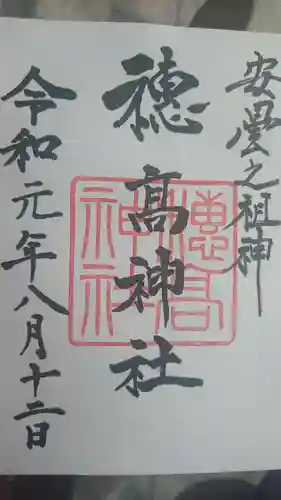 安曇之祖神
穂髙神社
令和元年八月十二日
穂高
神社